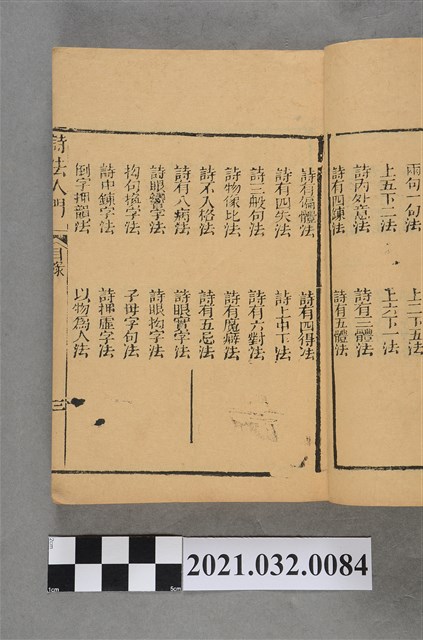 兩句一句法
二二五法
上五下二法
上六下一法
詩內外意法
詩有三體法
詩有四鍊法
詩有五體法
詩有偏體法
詩有四得法
詩有四失法
詩上中下法
詩三般句法
詩有六對法
詩物像比法
詩有魔癖法
詩不入格法
詩有五忌法
詩有八病法
詩眼實字法
詩眼響字法
詩眼拗字法
拗句換字法
子母字句法
詩中鍊字法
詩押虛字法
倒字押韻法
以物為人法
詩法入門
目錄
三
2cm
1cm
5cm
2021.032.0084